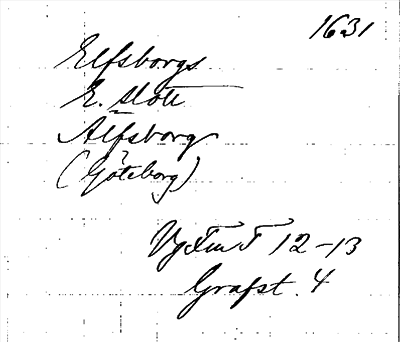 1631
Elfsborgs
E. slott
Älfsborg
(Göteborg)
12-13
Grafst. 4